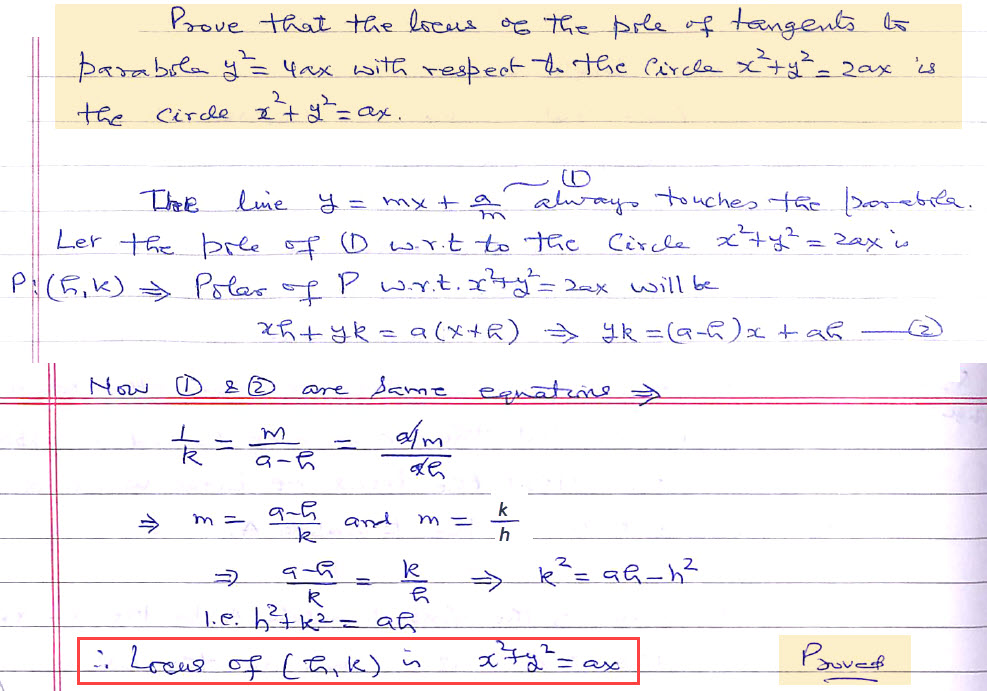 Prove that the locus of the pole of tangents to
parabola y² = 4ax with respect to the circle x²+y² = 2ax is
the circle x²+y² = ax.
The line y = mx + a/m —(1) always touches the parabola.
Let the pole of (1) w.r.t to the circle x²+y² = 2ax is
P:(h,k) ⇒ Polar of P w.r.t. x²+y² = 2ax will be
xh + yk = a(x+h) ⇒ yk = (a-h)x + ah —(2)
Now (1) & (2) are same equations ⇒
1/k = m/(a-h) = (a/m)/(ah)
⇒ m = (a-h)/k and m = k/h
⇒ (a-h)/k = k/h ⇒ k² = ah - h²
i.e. h²+k² = ah
∴ Locus of (h,k) is x²+y² = ax
Proved